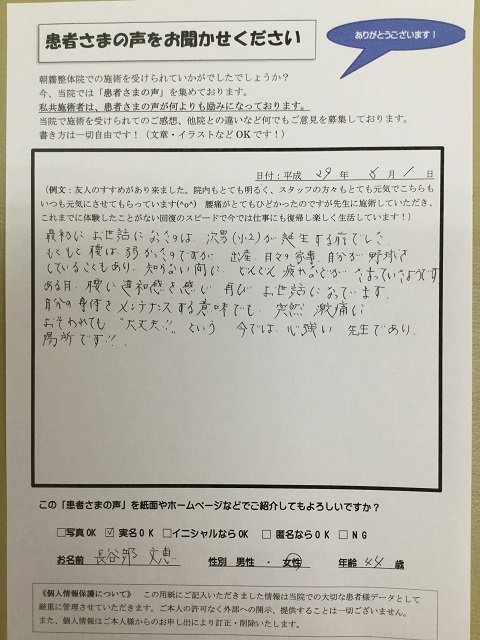 患者さまの声をお聞かせください
ありがとうございます！
朝霧整体院での施術を受けられていかがでしたでしょうか？
今、当院では「患者さまの声」を集めております。
私共施術者は、患者さまの声が何よりも励みになっております。
当院で施術を受けられてのご感想、他院との違いなど何でもご意見を募集しております。
書き方は一切自由です！（文章・イラストなどOKです！）
日付：平成 29 年 5 月 1 日
（例文：友人のすすめがあり来ました。院内もとても明るく、スタッフの方々もとても元気でこちらも
いつも元気にさせてもらっています(^o^)　腰痛がとてもひどかったのですが先生に施術していただき、
これまでに体験したことがない回復のスピードで今では仕事にも復帰し楽しく生活しています！）
最初にお世話になったのは、次男(小2)が誕生する前でした。
もともと腰は弱かったのですが 出産、日々の家事、自分が野球を
していることもあり、知らない間に、どんどん疲れなどが たまっていたようです
ある日、腰に違和感を感じ 再び お世話になってます。
自分の身体をメンテナンスする意味でも、突然 激痛に
おそわれても "大丈夫!!" という 今では、心強い 先生であり、
場所です!!
この「患者さまの声」を紙面やホームページなどでご紹介してもよろしいですか？
□写真OK ☑実名OK □イニシャルならOK □匿名ならOK □NG
お名前 長谷部 文恵 性別 男性 ・ 女性 年齢 44 歳
《個人情報保護について》 この用紙にご記入いただきました情報は当院での大切な患者様データとして
厳重に管理させていただきます。ご本人の許可なく外部への開示、提供することは一切ございません。
また、個人情報はご本人様からのお申し出により訂正・削除いたします。